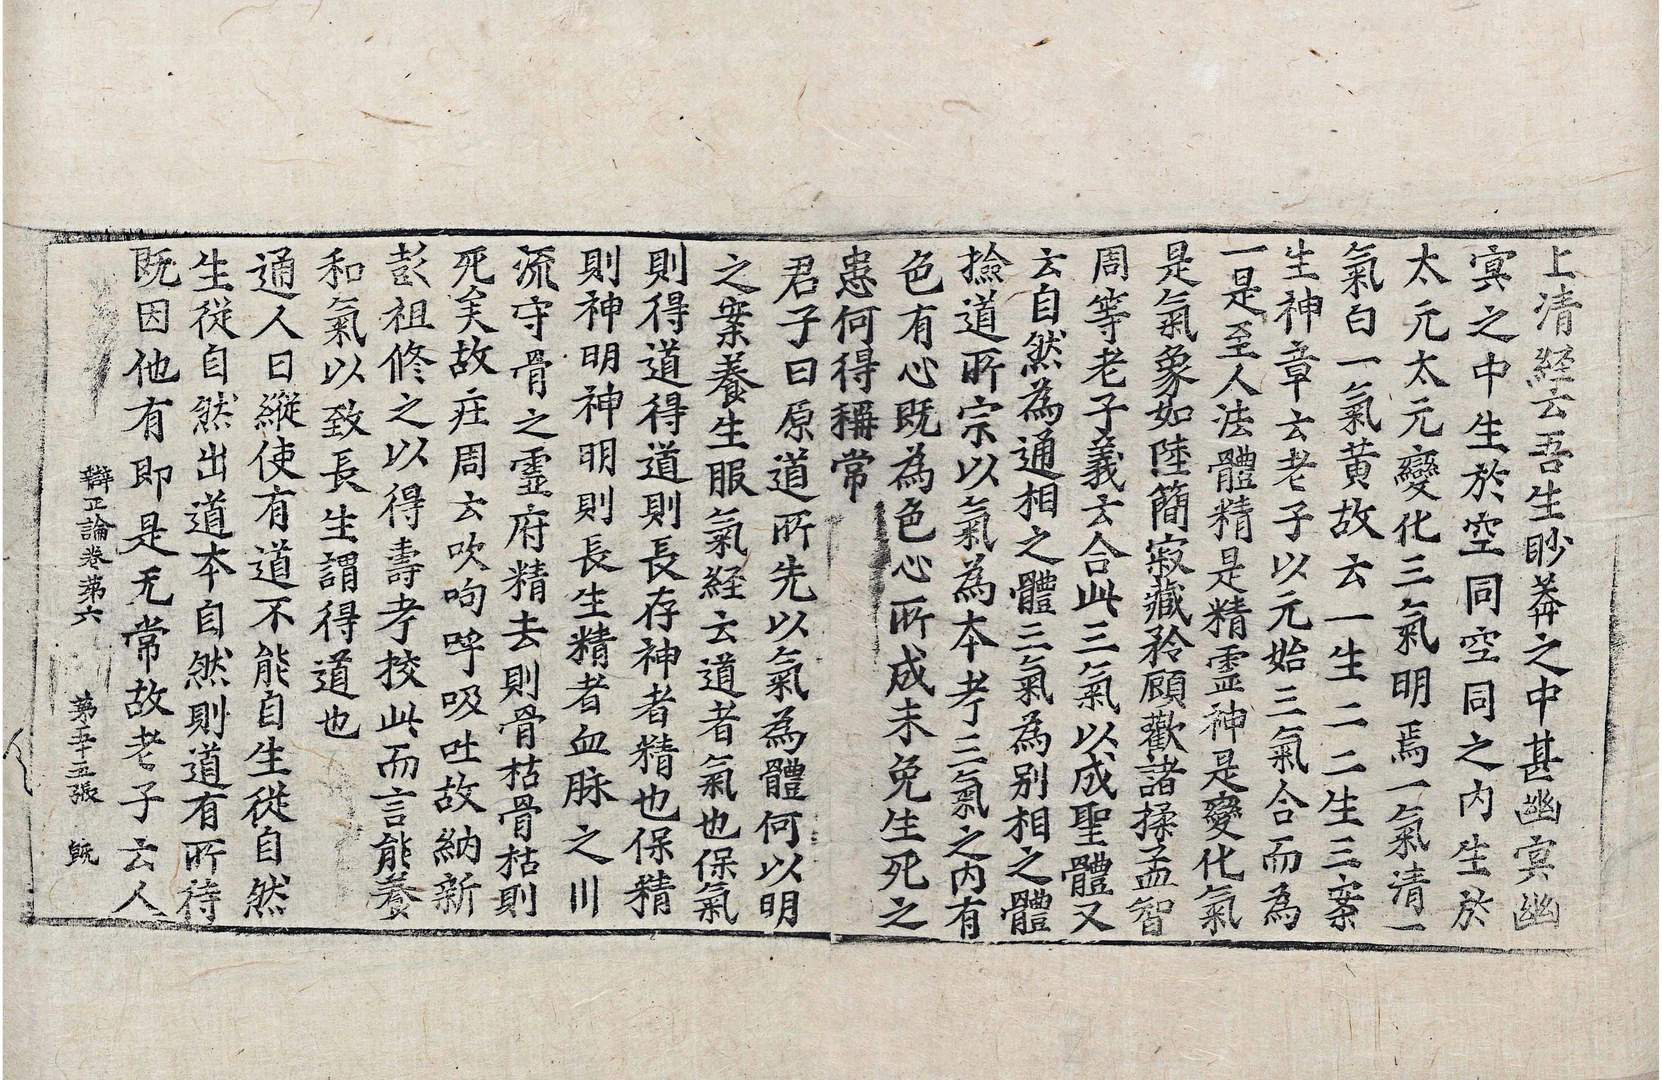 上清経云吾生眇莽之中甚幽㝠幽
㝠之中生於空同空同之内生於
太元太元變化三氣明焉一氣清一
氣白一氣黄故云一生二二生三案
生神章云老子以元始三氣合而為
一是至人法體精是精靈神是變化氣
是氣象如陸簡寂藏矜顧歡諸揉孟智
周等老子義云合此三氣以成聖體又
云自然為通相之體三氣為别相之體
撿道所宗以氣為本考三氣之内有
色有心既為色心所成未免生死之
患何得稱常
君子曰原道所先以氣為體何以明
之案養生服氣経云道者氣也保氣
則得道得道則長存神者精也保精
則神明神明則長生精者血脉之川
流守骨之靈府精去則骨枯骨枯則
死矣故莊周云吹呴呼吸吐故納新
彭祖修之以得壽考挍此而言能養
和氣以致長生謂得道也
通人曰縱使有道不能自生從自然
生從自然出道本自然則道有所待
既因他有即是无常故老子云人
辯正論卷第六 第五十五張 旣